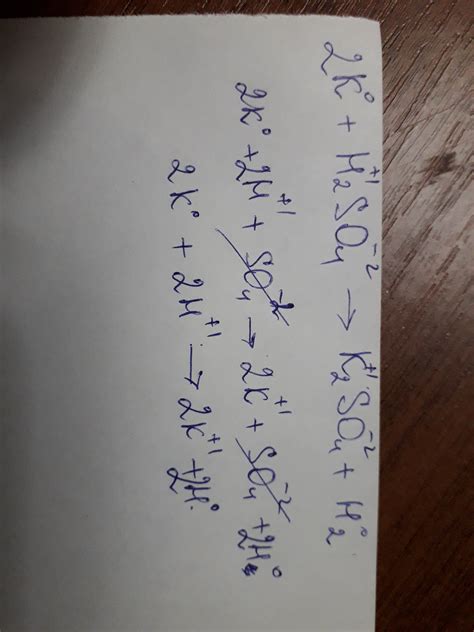 2K⁰ + H₂⁺¹SO₄⁻² → K₂⁺¹SO₄⁻² + H₂⁰
2K⁰ + 2H⁺¹ + SO₄⁻² → 2K⁺¹ + SO₄⁻² + 2H⁰
2K⁰ + 2H⁺¹ → 2K⁺¹ + 2H⁰